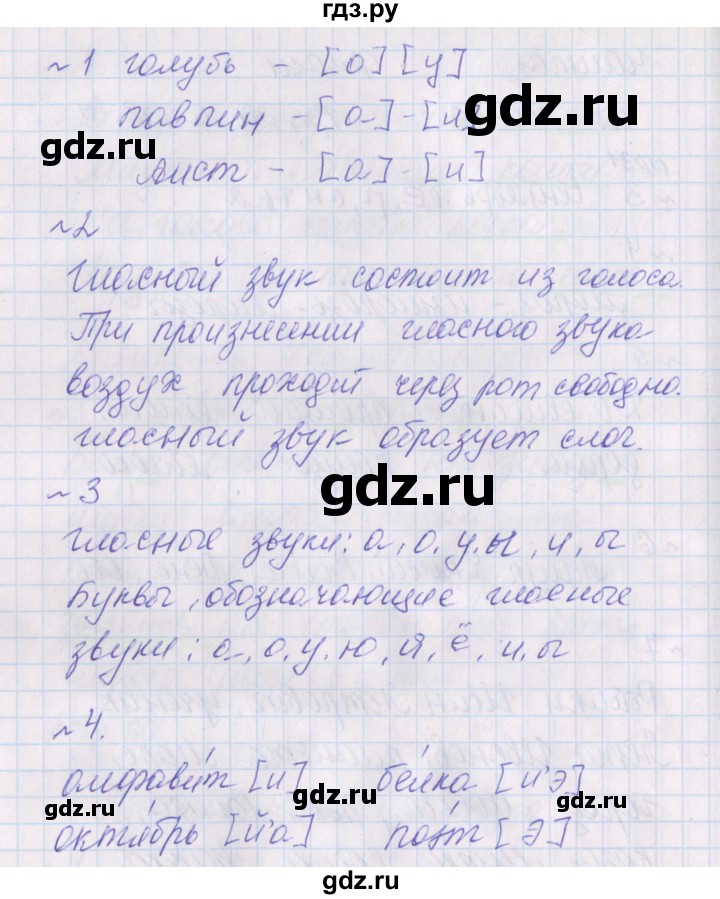 гдз.ру
~1 голубь - [о] [у]
павлин - [а] - [и]
gdz.ru
gdz.ru
аист - [а] - [и]
~2
Гласный звук состоит из голоса.
При произнесении гласного звука
воздух проходит через рот свободно.
гласный звук образует слог.
gdz.ru
~3
гласные звуки: а, о, у, ы, и, ы
Буквы, обозначающие гласные
звуки: а, о, у, ю, я, ё, и, ы
~4.
алфавит [и] белка [й'э]
gdz.ru
gdz.ru
октябрь [й'а] поэт [э]
gdz.ru
gdz.ru